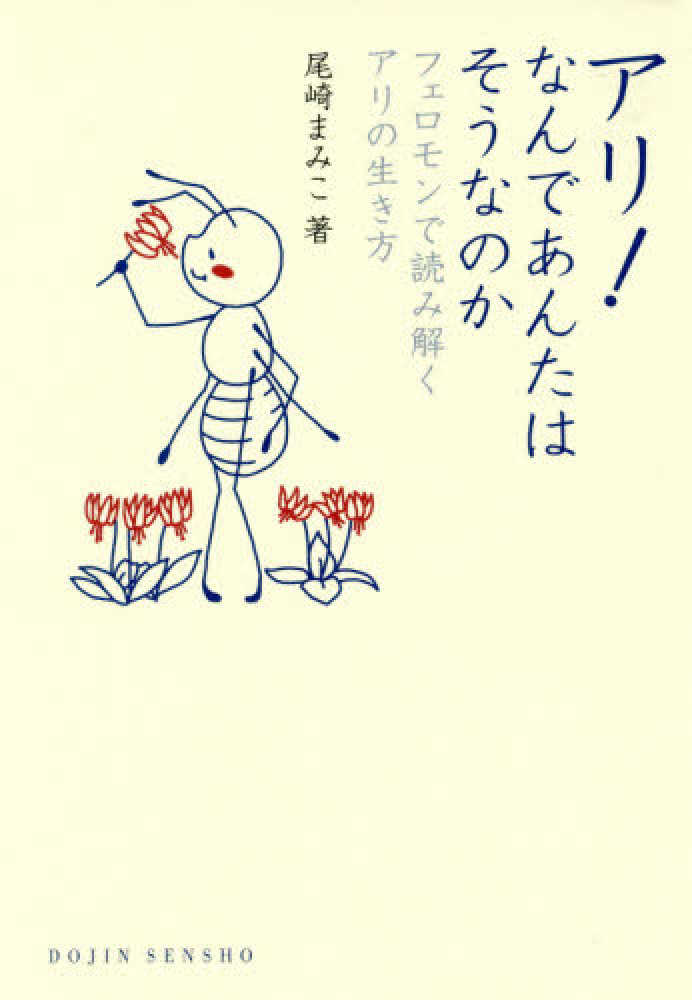 アリ!
なんであんたは
そうなのか
フェロモンで読み解く
アリの生き方
尾崎まみこ 著
DOJIN SENSHO